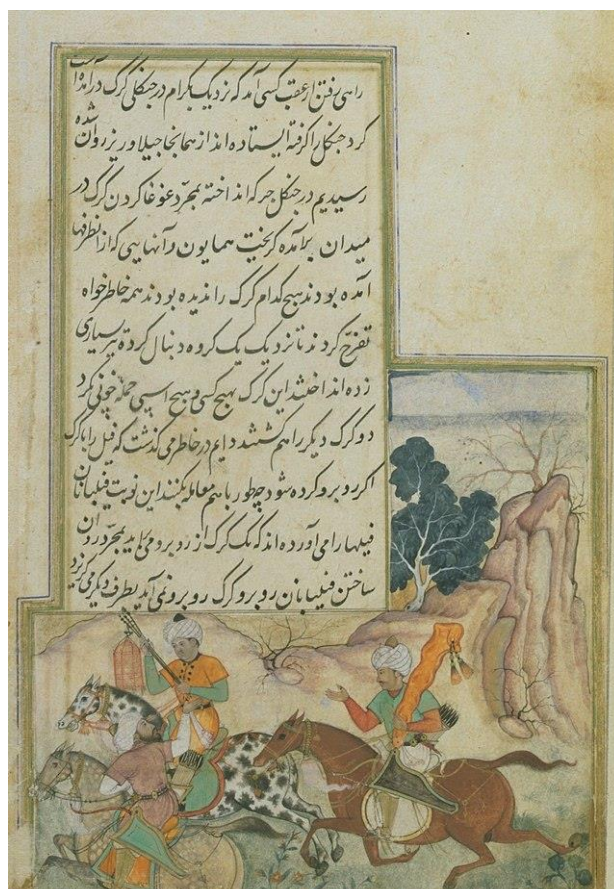 راهی رفتن از عقب کسی آمد که نزدیک بکرام در جنکلی کرک درآمده است
کرد جنکل را کرفته ایستاده اند از همانجا جیلاو ریز روان شده
رسیدیم در جنکل جرکه انداخته بمجرد غوغا کردن کرک در
میدان برآمده کریخت همایون و آنهایی که از انطرفها
آمده بودند هیچ کدام کرک را ندیده بودند همه خاطرخواه
تفرج کردند تا نزدیک یک کروه دنبال کرده تیر بسیاری
زده انداختند این کرک بهیچ کسی و بهیچ اسپی حمله خوبی نکرد
دو کرک دیکر را هم کشتند دایم در خاطر می کذشت که فیل را با کرک
اکر روبرو کرده شود چه طور با هم معامله بکنند این نوبت فیلبانان
فیلها را می آورده اند که یک کرک از روبرو می آید بمجرد روان
ساختن فیلبانان روبرو کرک روبرو نمی آید بطرف دیکر می کریزد